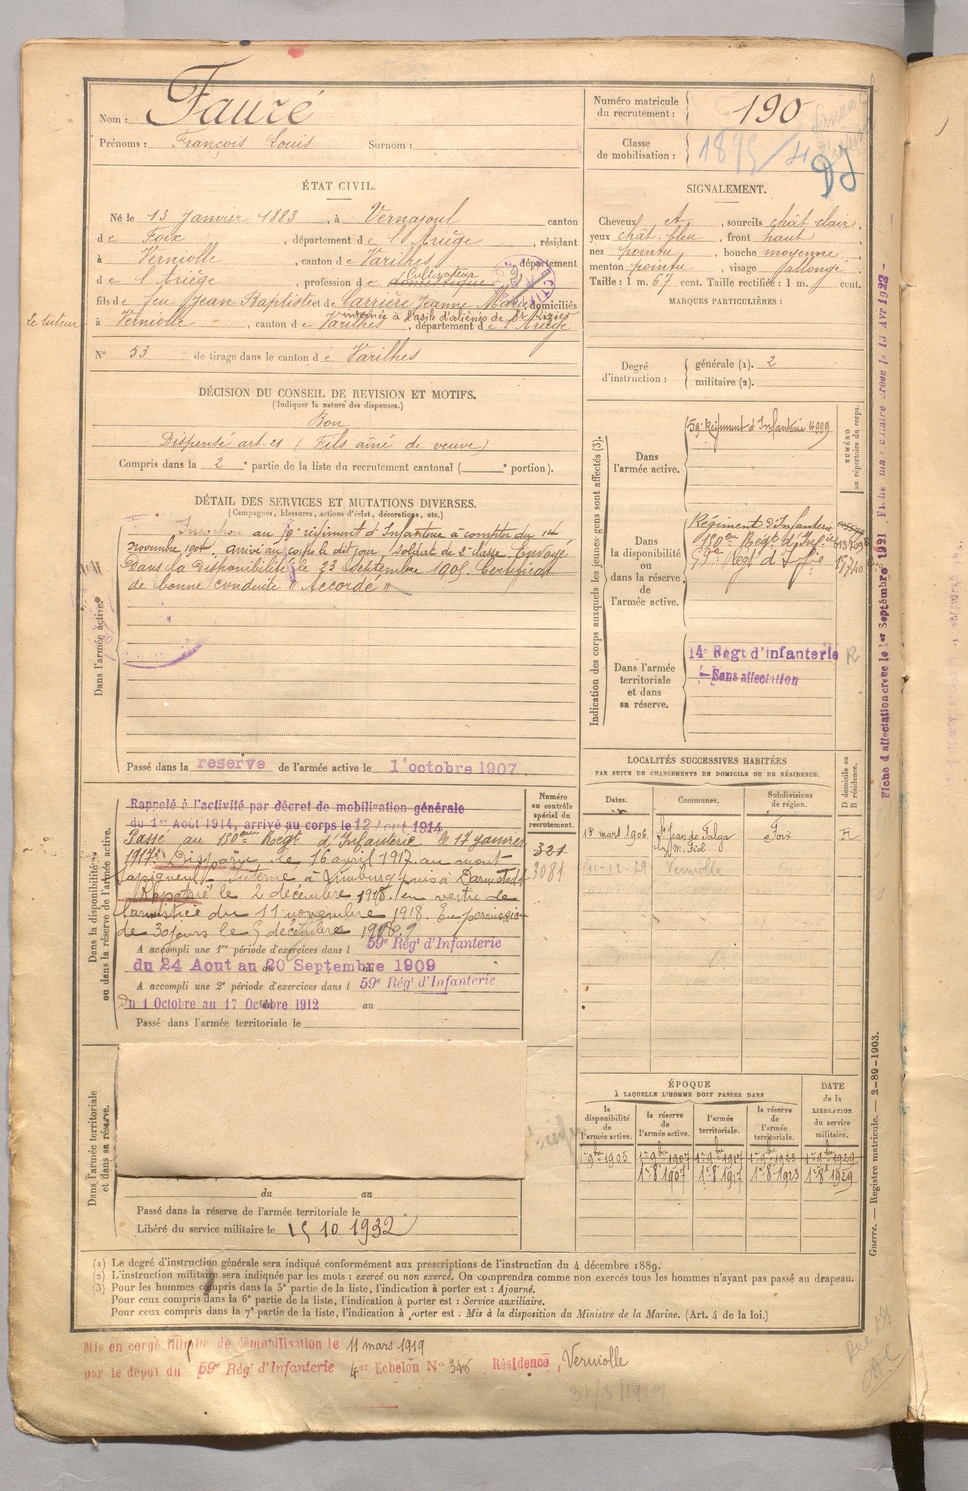 Nom : Fauré
Prénoms : François Louis Surnom :
Numéro matricule
du recrutement : 190
Classe
de mobilisation :
ÉTAT CIVIL.
Né le 13 janvier 1883, à Vernajoul canton
de Foix, département de l'Ariège, résidant
à Verniolle, canton de Varilhes, département
de l'Ariège, profession de domestique
Cultivateur
fils de feu Jean Baptiste et de Carrière Jeanne Marie domiciliés
internée à l'asile d'aliénés de St Lizier
Le tuteur à Verniolle, canton de Varilhes, département de l'Ariège
N° 53 de tirage dans le canton de Varilhes
SIGNALEMENT.
Cheveux ct, sourcils chât clair
yeux chât. bleu, front haut
nez pointu, bouche moyenne
menton pointu, visage allongé
Taille : 1 m. 67 cent. Taille rectifiée : 1 m. cent.
MARQUES PARTICULIÈRES :
Degré
d'instruction :
générale (1). 2
militaire (2).
DÉCISION DU CONSEIL DE REVISION ET MOTIFS.
(Indiquer la nature des dispenses.)
Bon
Dispensé art. 21 (Fils aîné de veuve)
Compris dans la 2e partie de la liste du recrutement cantonal ( e portion).
DÉTAIL DES SERVICES ET MUTATIONS DIVERSES.
(Campagnes, blessures, actions d'éclat, décorations, etc.)
Dans l'armée active.
Incorporé au 59e régiment d'Infanterie à compter du 14
novembre 1904, arrivé au corps le dit jour, soldat de 2e classe. Envoyé
dans la disponibilité le 23 Septembre 1905. Certificat
de bonne conduite "Accordé"
Passé dans la réserve de l'armée active le 1er octobre 1907
Indication des corps auxquels les jeunes gens sont affectés (3).
NUMÉRO
au répertoire du corps.
Dans
l'armée active.
59e Régiment d'Infanterie 4999
Dans
la disponibilité
ou
dans la réserve
de
l'armée active.
Régiment d'Infanterie
180e Regt d'Inf.ie
59e Regt d'Inf.ie 15740
Dans l'armée
territoriale
et dans
sa réserve.
14e Regt d'infanterie R
Sans affectation
Fiche d'affectation créée le 1er Septembre 1921
Dans la disponibilité
ou dans la réserve de l'armée active.
Rappelé à l'activité par décret de mobilisation générale
du 1er Août 1914, arrivé au corps le 12 Août 1914
Passé au 180ème Regt d'Infanterie le 17 janvier
1917. Disparu le 16 avril 1917 au mont
Capigneul interné à Limburg puis à Darmstadt
Rapatrié le 2 décembre 1918 en vertu de
l'armistice du 11 novembre 1918. En permission
de 30 jours le 5 décembre 1918
A accompli une 1re période d'exercices dans l 59e Régt d'Infanterie
du 24 Aout au 20 Septembre 1909
A accompli une 2e période d'exercices dans l 59e Régt d'Infanterie
Du 1 Octobre au 17 Octobre 1912 au
Passé dans l'armée territoriale le
Numéro
au contrôle
spécial du
recrutement.
321
3081
LOCALITÉS SUCCESSIVES HABITÉES
PAR SUITE DE CHANGEMENTS DE DOMICILE OU DE RÉSIDENCE.
Dates. Communes. Subdivisions
de région.
D domicile ou
R résidence.
13 mars 1906 St Jean de Falga Foix R
-12-29 Verniolle
Dans l'armée territoriale
et dans sa réserve.
du au
Passé dans la réserve de l'armée territoriale le
Libéré du service militaire le 15 10 1932
ÉPOQUE
À LAQUELLE L'HOMME DOIT PASSER DANS
DATE
de la
LIBÉRATION
du service
militaire.
la
disponibilité
de
l'armée active.
la réserve
de
l'armée active.
l'armée
territoriale.
la réserve
de
l'armée
territoriale.
1er 9bre 1905 1er 9bre 1907 1er 9bre 1917 1er 9bre 1923 1er 9bre 1929
1er 8bre 1907 1er 8 1917 1er 8 1923 1er 8 1929
Guerre. — Registre matricule. — 2-89-1903.
(1) Le degré d'instruction générale sera indiqué conformément aux prescriptions de l'instruction du 4 décembre 1889.
(2) L'instruction militaire sera indiquée par les mots : exercé ou non exercé. On comprendra comme non exercés tous les hommes n'ayant pas passé au drapeau.
(3) Pour les hommes compris dans la 5e partie de la liste, l'indication à porter est : Ajourné.
Pour ceux compris dans la 6e partie de la liste, l'indication à porter est : Service auxiliaire.
Pour ceux compris dans la 7e partie de la liste, l'indication à porter est : Mis à la disposition du Ministre de la Marine. (Art. 4 de la loi.)
Mis en congé illimité de démobilisation le 11 mars 1919
par le dépôt du 59e Régt d'Infanterie 4e Echelon N° 346 Résidence Verniolle